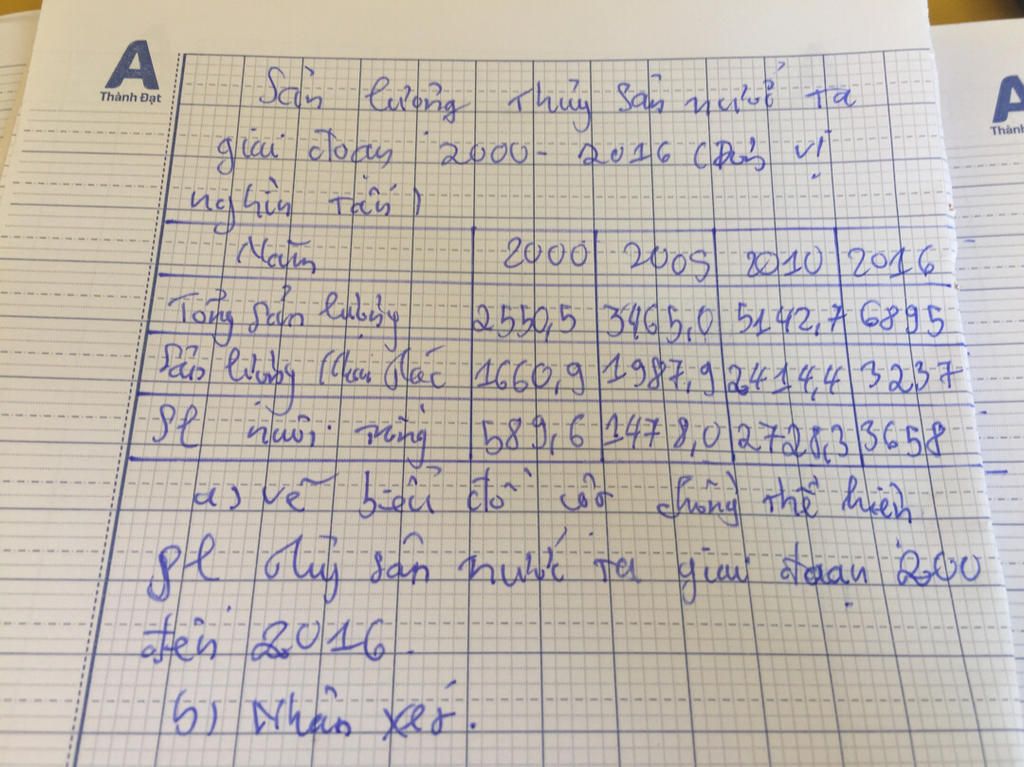 A
Thành Đạt
A
Thành
Sản lượng thủy sản nước ta
giai đoạn 2000 - 2016 (Đơn vị
nghìn tấn)
Năm 2000 2005 2010 2016
Tổng sản lượng 2550,5 3465,0 5142,7 6895
Sản lượng khai thác 1660,9 1987,9 2414,4 3237
Sl nuôi trồng 589,6 1478,0 2728,3 3658
a) vẽ biểu đồ cột chồng thể hiện
sl thủy sản nước ta giai đoạn 200
đến 2016.
b) Nhận xét.